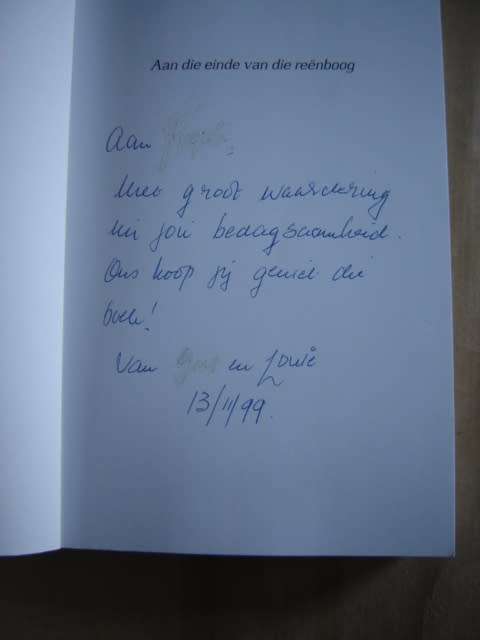 Aan die einde van die reënboog
Aan
Met groot waardering
vir jou bedagsaamheid.
Ons hoop jy geniet die
boek!
Van en Louie
13/11/99.